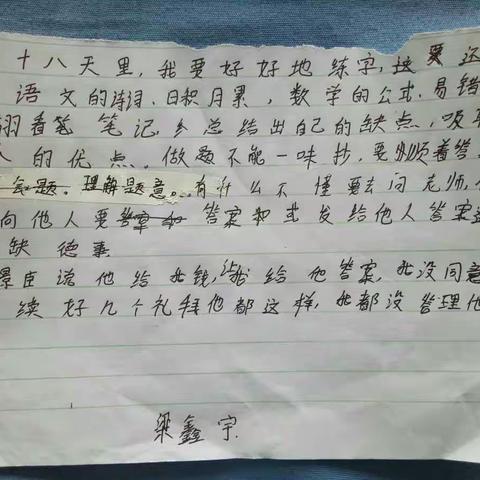 十八天里,我要好好地练字,这要还
语文的诗词、日积月累,数学的公式、易错
翻看笔笔记,多总结出自己的缺点,吸取
人的优点。做题不能一味抄,要顺着答
会题。理解题意。有什么不懂要去问老师,
向他人要答案和答案和或发给他人答案
缺德事
臣说他给我钱,让我给他答案,我没同意
续好几个礼拜他都这样,我都没管理他
梁鑫宇